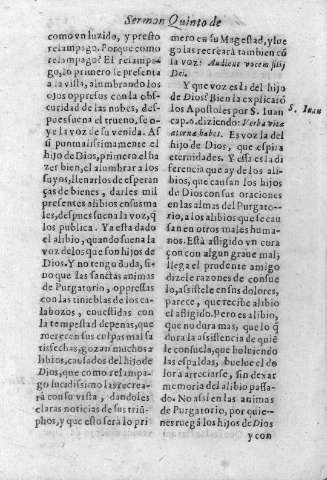 Sermon Quinto de
como vn luzido, y presto
relampago. Porque como
relampago? El relampa-
go, lo primero se presenta
a la vista, alumbrando los
ojos oppresos con la obs-
curidad de las nubes, des-
pues suena el trueno, se o-
ye la voz de su venida. Assi
puntualissimamente el
hijo de Dios, primero el ha
zer bien, el alumbrar a los
suyos, llenarlos de esperan
ças de bienes, darles mil
presentes alibios en sus ma
les, despues suena la voz, q̃
los publica. Ya esta dado
el alibio, quando suena la
voz de los que son hijos de
Dios. Y no tengu duda, si-
no que las sanctas animas
de Purgatorio, oppressas
con las tinieblas de los ca-
labozos, enuestidas con
la tempestad de penas, que
merecen sus culpas mal sa
tisfechas, gozan muchos a
libios, causados del hijo de
Dios, que como relampa-
go lucidissimo las recrea-
rà con su vista, dandoles
claras noticias de sus triũ-
phos, y que esto sera lo pri
mero en su Magestad, y lue
go las recreará tambien cõ
la voz: Audient vocem filij
Dei.
Y que voz es la del hijo
de Dios? Bien la explicaró
los Apostoles por S. Iuan
cap. 6. diziendo: Verba vitæ
æternæ habes. Es voz la del
hijo de Dios, que espira
eternidades. Y essa es la di
ferencia que ay de los ali-
bios, que causan los hijos
de Dios con sus oraciones
en las almas del Purgato-
rio, a los alibios que se cau
san en otros males huma-
nos. Està afligido vn cora
çon con algun graue mal;
llega el prudente amigo
dizele razones de consue
lo, assistele en sus dolores,
parece, que recibe alibio
el afligido. Pero es alibio,
que no dura mas, que lo q̃
dura la assistencia de quiẽ
le consuela, que boluiendo
las espaldas, buelue el do
lor a arreciarse, sin dexar
memoria del alibio passa-
do. No assi en las animas
de Purgatorio, por quie-
nes ruegã los hijos de Dios
y con
S. Iuan